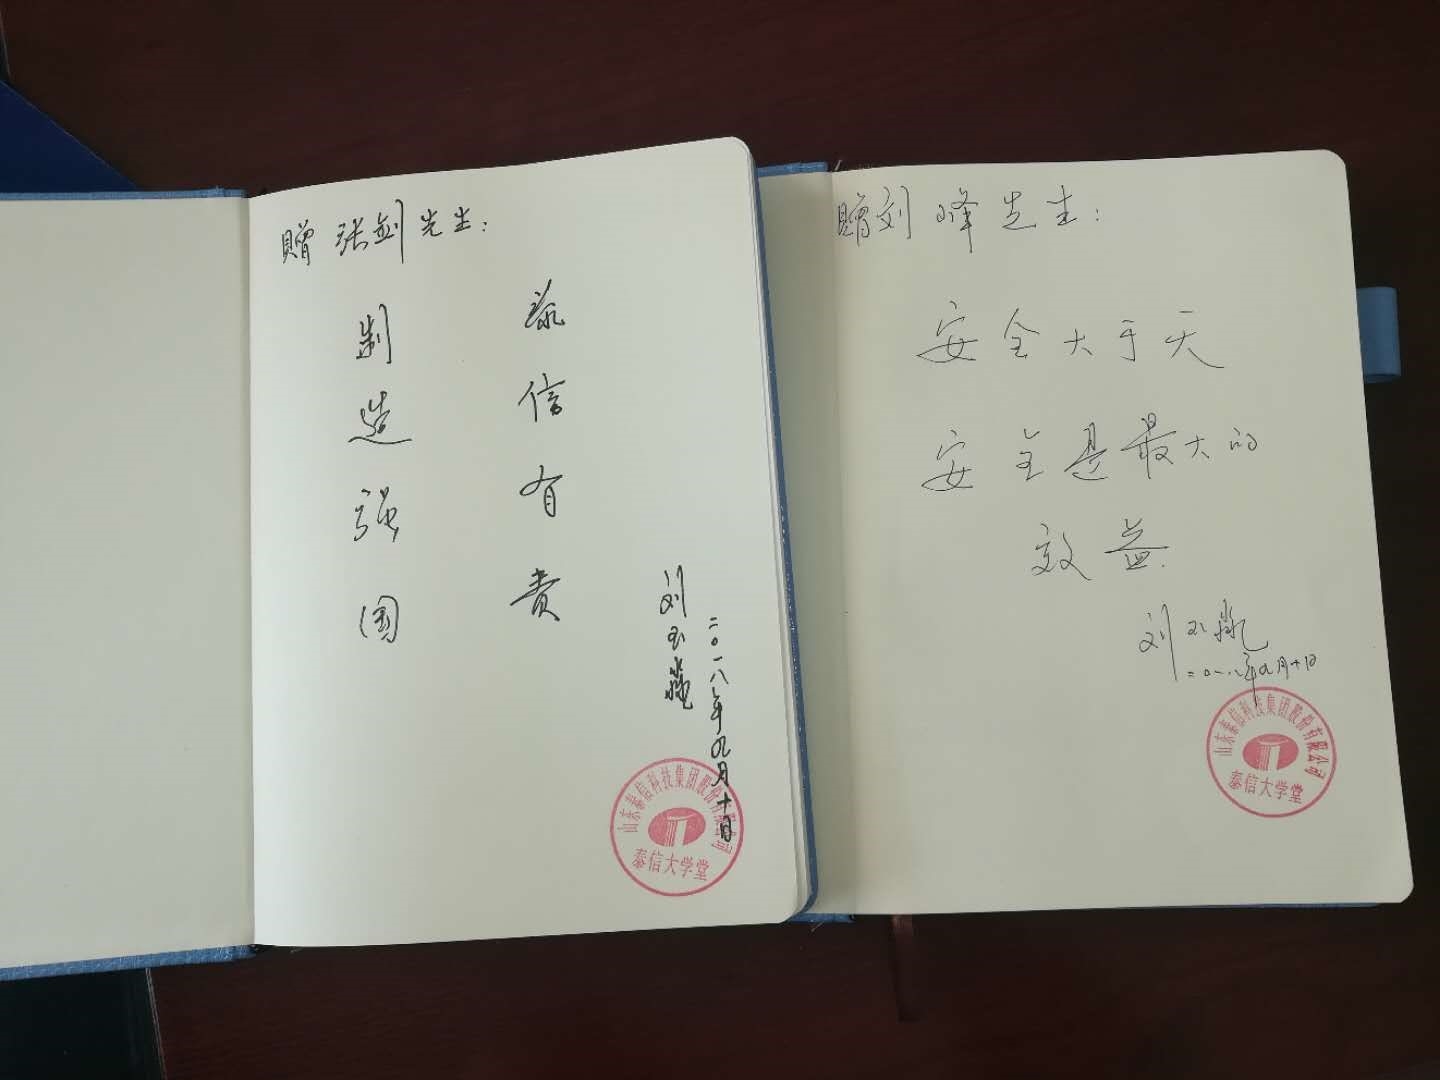 贈张剑先生：
制造强国
泰信有责
刘玉
二〇一八年九月十日
山东泰信科技集团股份有限公司
泰信大学堂
贈刘峰先生：
安全大于天
安全是最大的
效益.
刘玉
二〇一八年九月十日
山东泰信科技集团股份有限公司
泰信大学堂